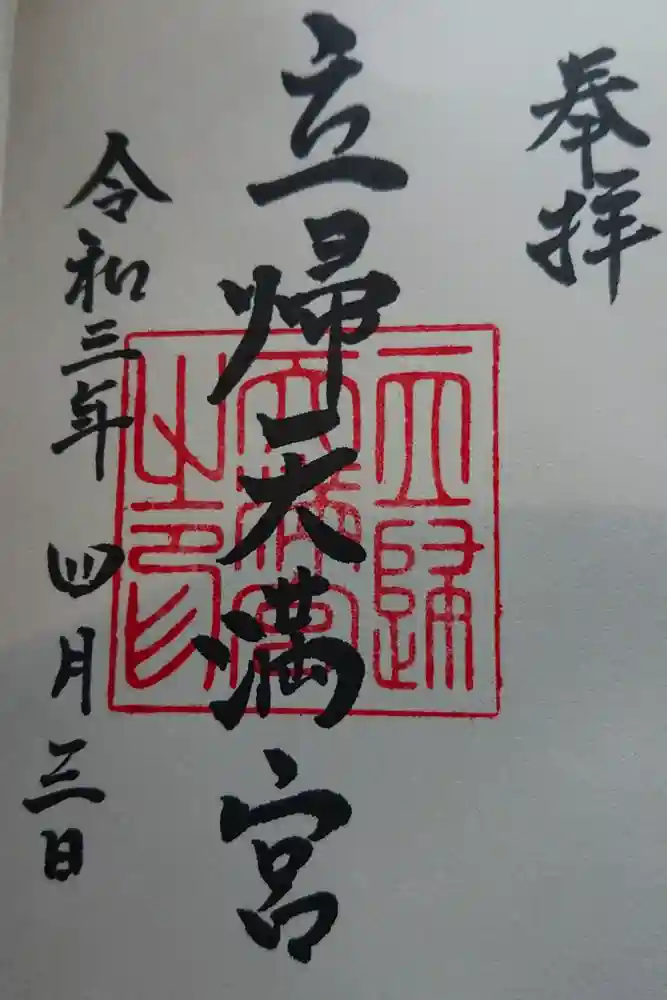 奉拝
立帰天満宮
令和三年 四月三日
立歸
天満宮
之印